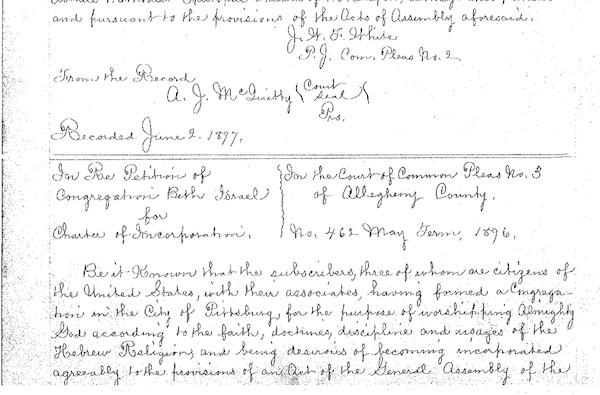 and pursuant to the provisions of the Acts of Assembly aforesaid.
J. W. F. White
P. J. Com. Pleas No. 2
From the Record
A. J. McQuitty (Court Seal)
Pro.
Recorded June 2. 1897.
In Re Petition of
Congregation Beth Israel
for
Charter of Incorporation.
In the Court of Common Pleas No. 3
of Allegheny County.
No. 462 May Term, 1896.
Be it Known that the subscribers, three of whom are citizens of
the United States, with their associates, having formed a Congrega-
tion in the City of Pittsburg, for the purpose of worshipping Almighty
God according to the faith, doctines, discipline and usages of the
Hebrew Religion, and being desirous of becoming incorporated
agreeably to the provisions of an Act of the General Assembly of the